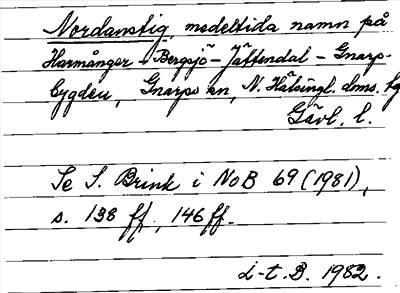 Nordanstig, medeltida namn på
Harmånger - Bergsjö - Jättendal - Gnarps-
bygden, Gnarps sn, N. Hälsingl. dms.
Gävl. l.
Se S. Brink i NoB 69 (1981),
s. 138 ff, 146 ff.
L-t. B. 1982.